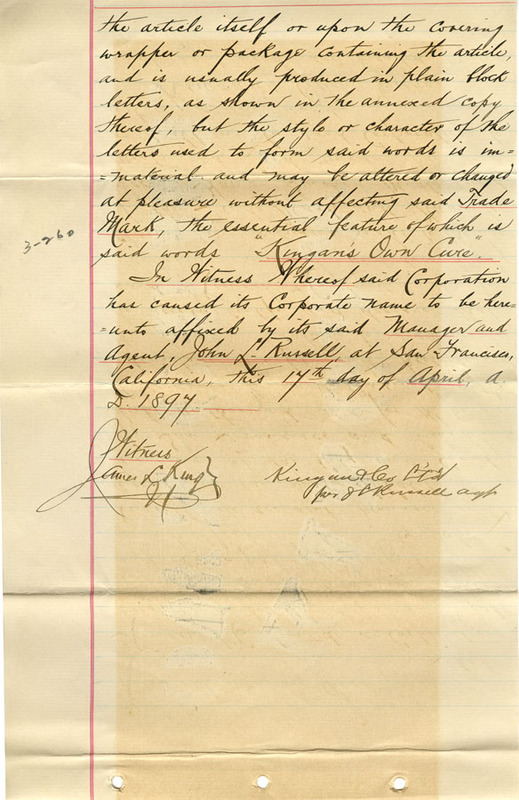 the article itself or upon the covering
wrapper or package containing the article,
and is usually produced in plain block
letters, as shown in the annexed copy
thereof, but the style or character of the
letters used to form said words is im=
=material and may be altered or changed
at pleasure without affecting said Trade
Mark, the essential feature of which is
said words "Kingan's Own Cure".
3-260
In Witness Whereof said Corporation
has caused its Corporate name to be here=
=unto affixed by its said Manager and
Agent, John L. Russell, at San Francisco,
California, this 17th day of April, A.
D. 1897.
Witness
James L. King
Kingan & Co Lt'd
per J L Russell Agt